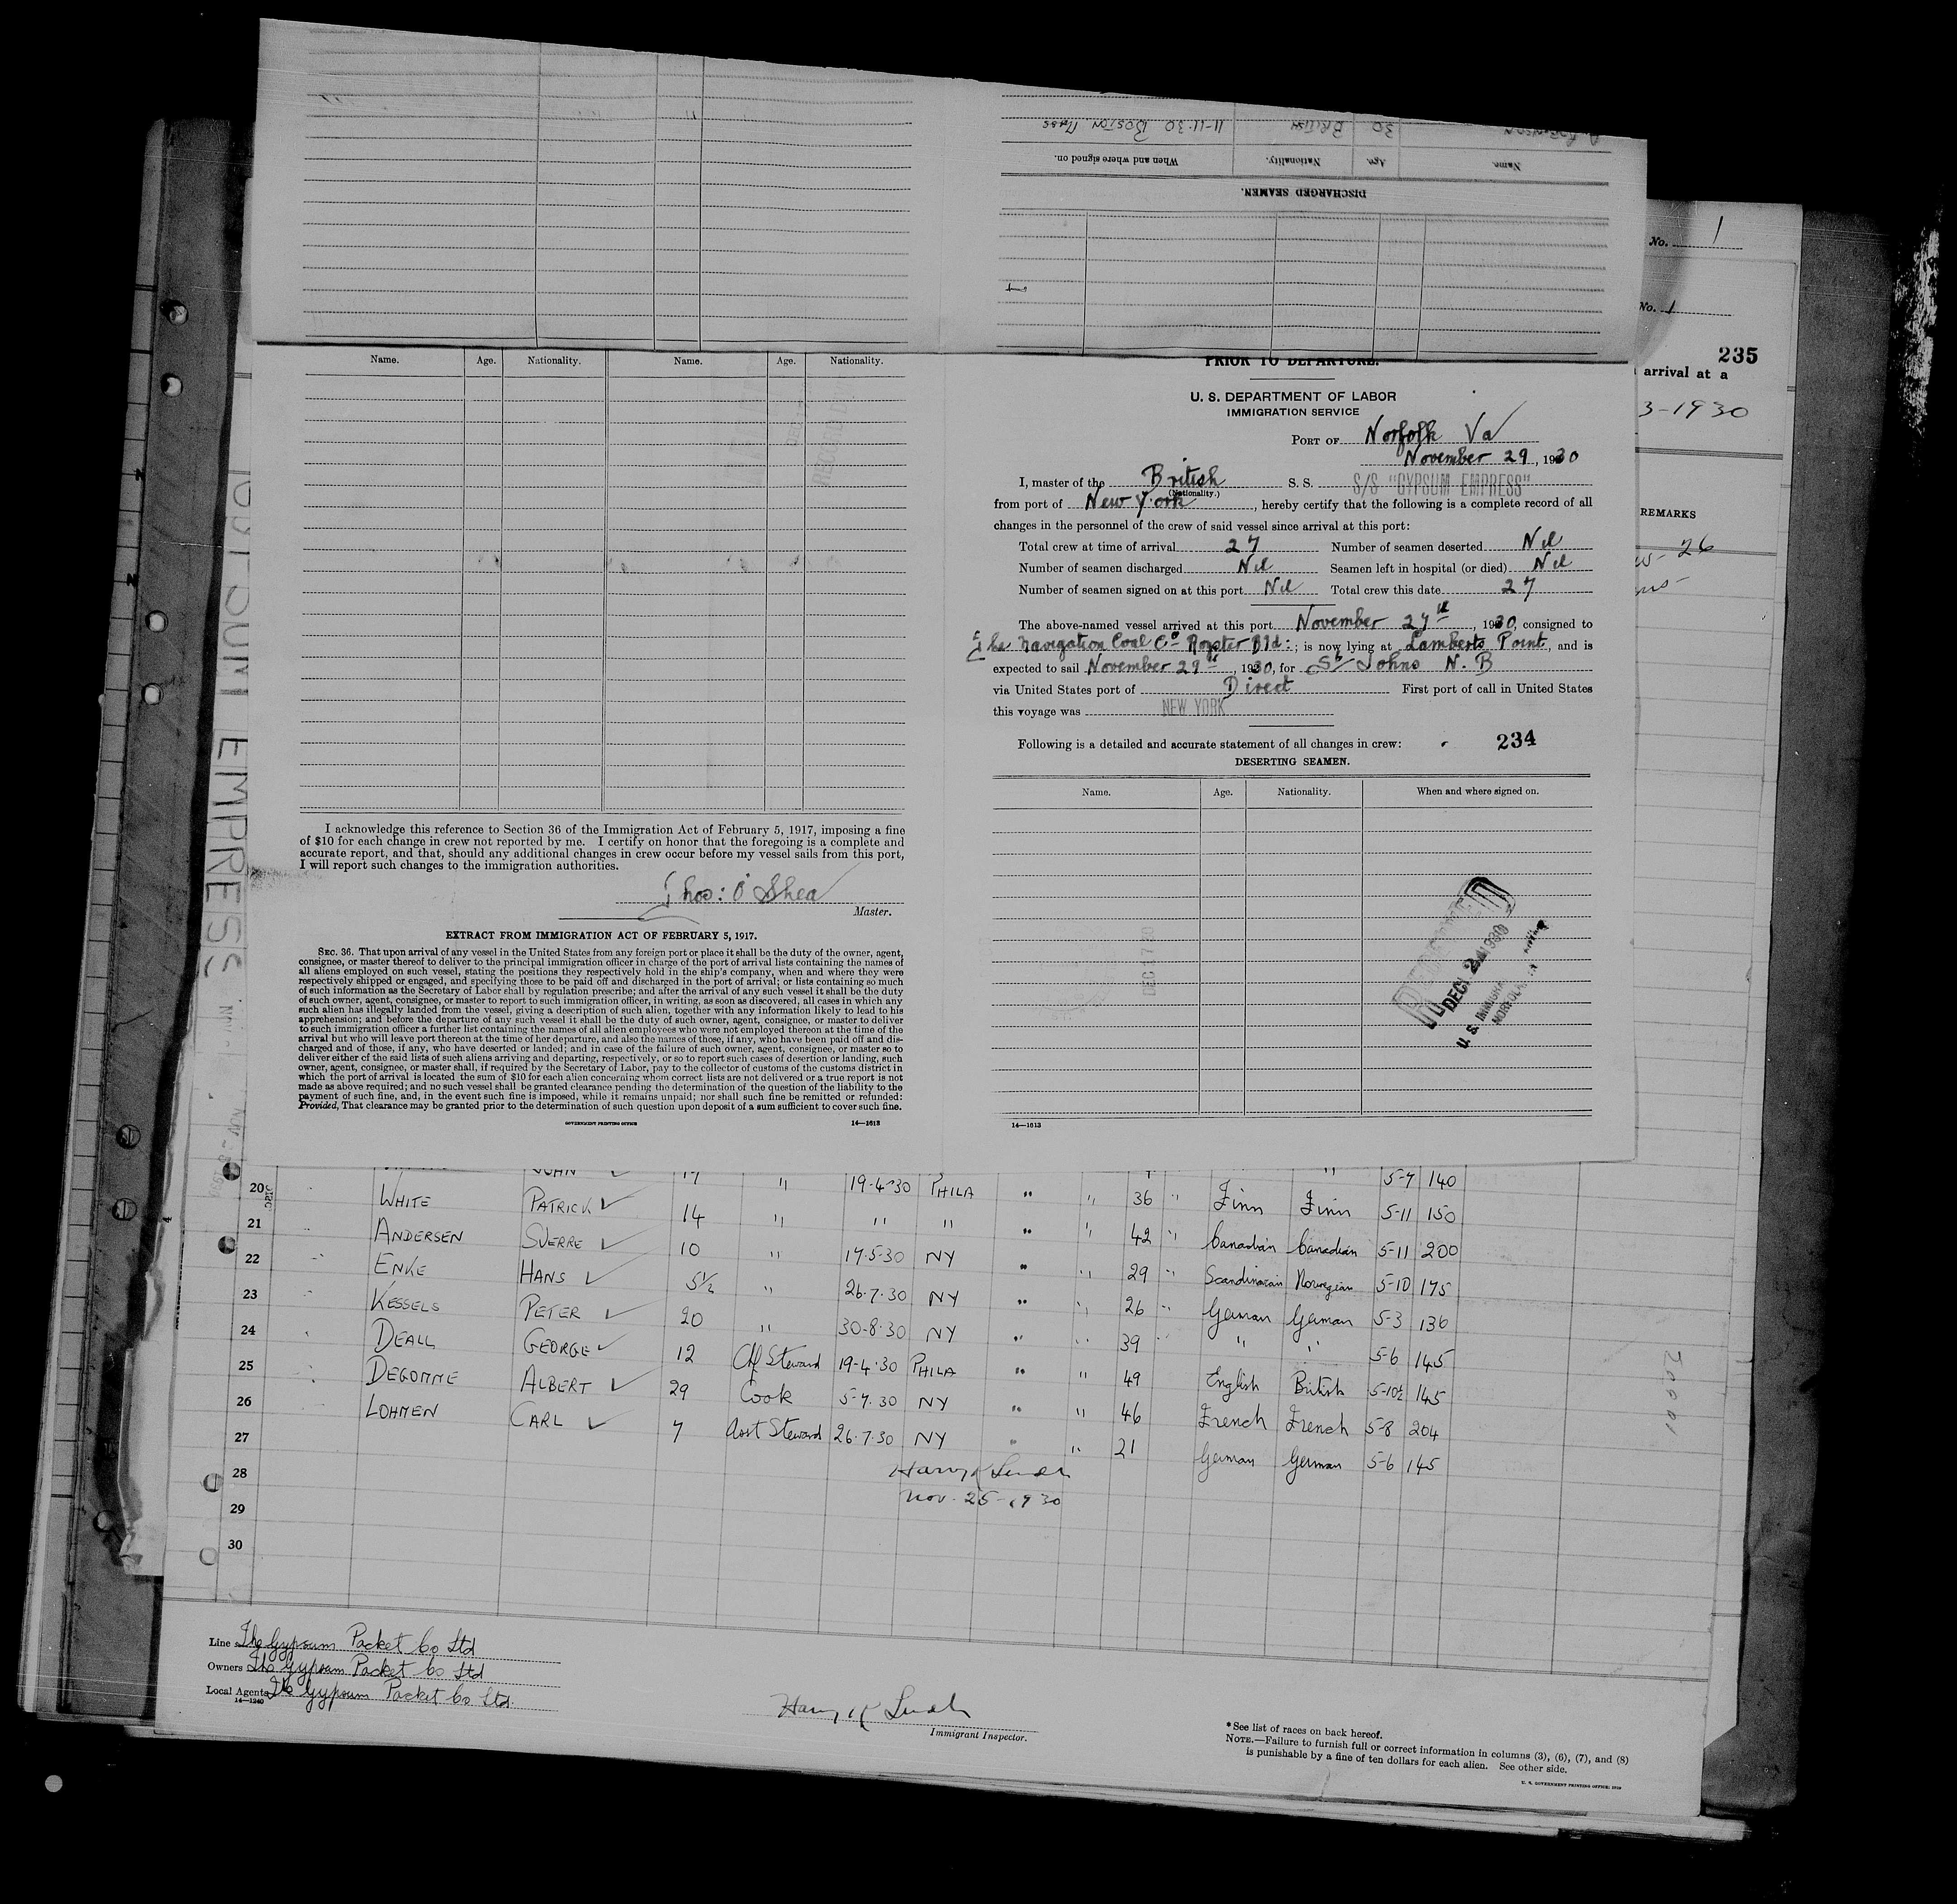 Name. Age. Nationality. When and where signed on.
30 BRITISH 11-11-30 BOSTON MASS
DISCHARGED SEAMEN.
No. 1
No. 1
235
arrival at a
3-1930
REMARKS
26
Name. Age. Nationality. Name. Age. Nationality.
I acknowledge this reference to Section 36 of the Immigration Act of February 5, 1917, imposing a fine
of $10 for each change in crew not reported by me. I certify on honor that the foregoing is a complete and
accurate report, and that, should any additional changes in crew occur before my vessel sails from this port,
I will report such changes to the immigration authorities.
Thos: O'Shea
Master.
EXTRACT FROM IMMIGRATION ACT OF FEBRUARY 5, 1917.
SEC. 36. That upon arrival of any vessel in the United States from any foreign port or place it shall be the duty of the owner, agent,
consignee, or master thereof to deliver to the principal immigration officer in charge of the port of arrival lists containing the names of
all aliens employed on such vessel, stating the positions they respectively hold in the ship's company, when and where they were
respectively shipped or engaged, and specifying those to be paid off and discharged in the port of arrival; or lists containing so much
of such information as the Secretary of Labor shall by regulation prescribe; and after the arrival of any such vessel it shall be the duty
of such owner, agent, consignee, or master to report to such immigration officer, in writing, as soon as discovered, all cases in which any
such alien has illegally landed from the vessel, giving a description of such alien, together with any information likely to lead to his
apprehension; and before the departure of any such vessel it shall be the duty of such owner, agent, consignee, or master to deliver
to such immigration officer a further list containing the names of all alien employees who were not employed thereon at the time of the
arrival but who will leave port thereon at the time of her departure, and also the names of those, if any, who have been paid off and dis-
charged and of those, if any, who have deserted or landed; and in case of the failure of such owner, agent, consignee, or master so to
deliver either of the said lists of such aliens arriving and departing, respectively, or so to report such cases of desertion or landing, such
owner, agent, consignee, or master shall, if required by the Secretary of Labor, pay to the collector of customs of the customs district in
which the port of arrival is located the sum of $10 for each alien concerning whom correct lists are not delivered or a true report is not
made as above required; and no such vessel shall be granted clearance pending the determination of the question of the liability to the
payment of such fine, and, in the event such fine is imposed, while it remains unpaid; nor shall such fine be remitted or refunded:
Provided, That clearance may be granted prior to the determination of such question upon deposit of a sum sufficient to cover such fine.
GOVERNMENT PRINTING OFFICE 14—1613
PRIOR TO DEPARTURE.
U. S. DEPARTMENT OF LABOR
IMMIGRATION SERVICE
PORT OF Norfolk Va
November 29, 1930
I, master of the British S. S. S/S "GYPSUM EMPRESS"
(Nationality.)
from port of New York, hereby certify that the following is a complete record of all
changes in the personnel of the crew of said vessel since arrival at this port:
Total crew at time of arrival 27 Number of seamen deserted Nil
Number of seamen discharged Nil Seamen left in hospital (or died) Nil
Number of seamen signed on at this port Nil Total crew this date 27
The above-named vessel arrived at this port November 27th, 1930, consigned to
The Navigation Coal Co Royster Bld:; is now lying at Lamberts Point, and is
expected to sail November 29th, 1930, for St Johns N. B
via United States port of Direct First port of call in United States
this voyage was NEW YORK
Following is a detailed and accurate statement of all changes in crew:
234
DESERTING SEAMEN.
Name. Age. Nationality. When and where signed on.
DEC 17 30
DEC 2 1930
U. S. IMMIGRA
NORFOLK
14—1613
GYPSUM EMPRESS
JOHN 17 5-7 140
20 WHITE PATRICK 14 " 19-4-30 PHILA " " 36 " Finn Finn 5-11 150
21 ANDERSEN SVERRE 10 " " " " " 42 " Canadian Canadian 5-11 200
22 ENKE HANS 5½ " 17-5-30 NY " " 29 " Scandinavian Norwegian 5-10 175
23 KESSELS PETER 20 " 26-7-30 NY " " 26 " German German 5-3 136
24 DEALL GEORGE 12 " 30-8-30 NY " " 39 " " " 5-6 145
25 DEGOMME ALBERT 29 Chf Steward 19-4-30 PHILA " " 49 English British 5-10½ 145
26 LOHMEN CARL 7 Cook 5-7-30 NY " " 46 French French 5-8 204
27 Asst Steward 26-7-30 NY " " 21 German German 5-6 145
28
Nov. 25-1930
29
30
Line The Gypsum Packet Co Ltd
Owners The Gypsum Packet Co Ltd
Local Agents The Gypsum Packet Co Ltd.
14—1240
Immigrant Inspector.
*See list of races on back hereof.
NOTE.—Failure to furnish full or correct information in columns (3), (6), (7), and (8)
is punishable by a fine of ten dollars for each alien. See other side.